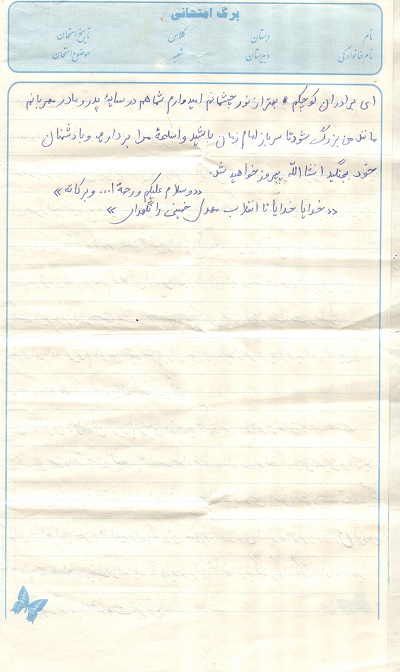 برگ امتحانی
نام دبستان کلاس تاریخ امتحان
نام خانوادگی دبیرستان شعبه موضوع امتحان
ای برادران کوچکم بهتر از نور چشمانم امیدوارم شما هم در سایه پدر و مادر مهربانم
مانند من بزرگ شود تا سرباز امام زمان باشید و اسلحهٔ مرا بردارید و با دشمنان
خود بجنگید انشاالله پیروز خواهید شد.
«وسلام علیکم ورحمة ا... وبرکاته»
«خدایا خدایا تا انقلاب مهدی خمینی را نگهدار»